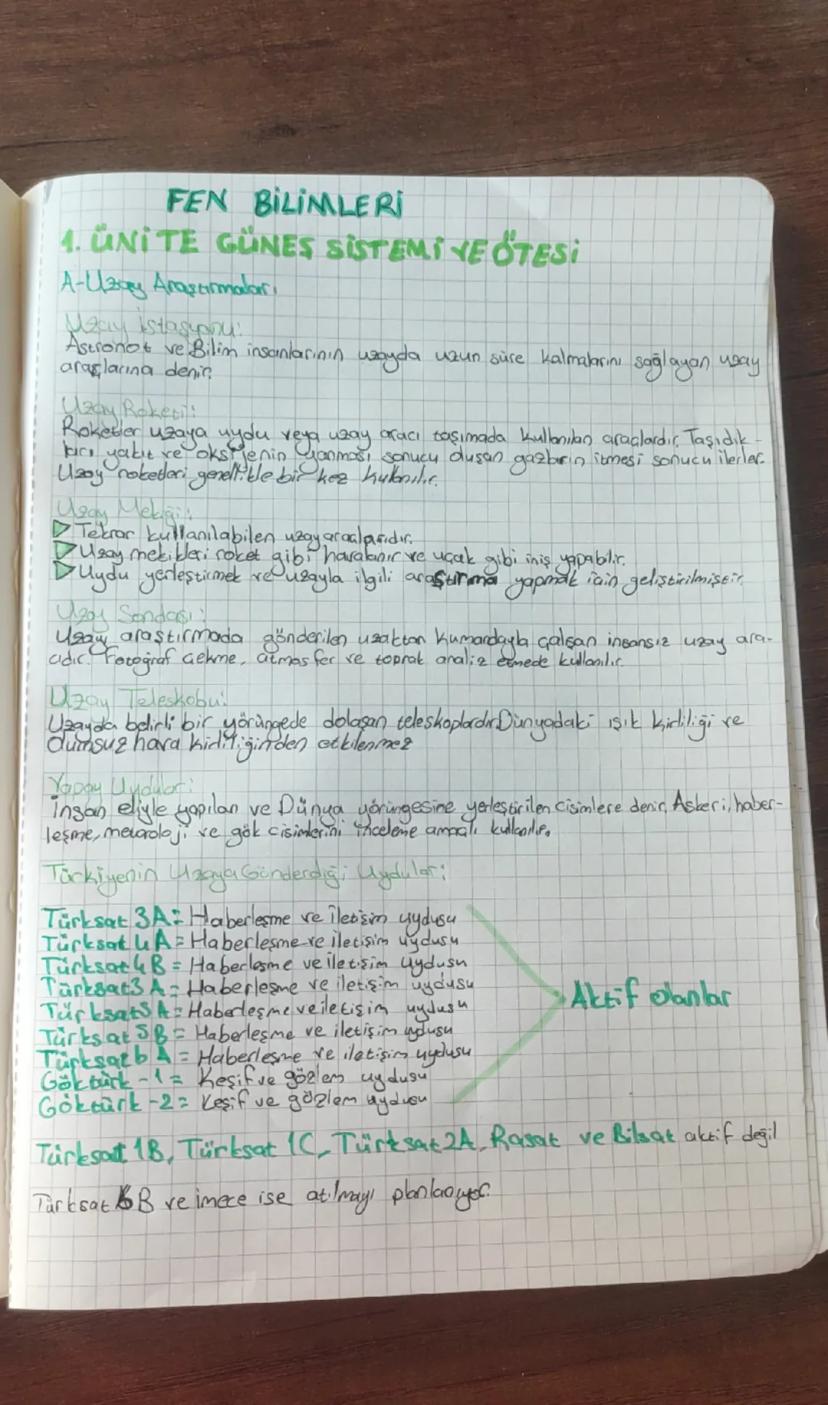 FEN BİLİMLERİ
1. ÜNİTE GÜNEŞ SİSTEMİ VE ÖTESİ
A-Uzay Araştırmaları
Uzay İstasyonu:
Astronot ve Bilim insanlarının uzayda uzun süre kalmalarını sağlayan uzay
araçlarına denir.
Uzay Roketi:
Roketler uzaya uydu veya uzay aracı taşımada kullanılan araçlardır. Taşıdık-
ları yakıt ve oksijenin yanması sonucu oluşan gazların itmesi sonucu ilerler.
Uzay roketleri genellikle bir kez kullanılır.
Uzay Mekiği:
Tekrar kullanılabilen uzay araçlarıdır.
Uzay mekikleri roket gibi havalanır ve uçak gibi iniş yapabilir.
Uydu yerleştirmek ve uzayla ilgili araştırma yapmak için geliştirilmiştir.
Uzay Sondası:
Uzay araştırmada gönderilen uzaktan kumandayla çalışan insansız uzay ara-
cıdır. Fotoğraf çekme, atmosfer ve toprak analiz etmede kullanılır.
Uzay Teleskobu:
Uzayda belirli bir yörüngede dolaşan teleskoplardır. Dünyadaki ışık kirliliği ve
olumsuz hava kirliliğinden etkilenmez
Yapay Uydular:
İnsan eliyle yapılan ve Dünya yörüngesine yerleştirilen cisimlere denir. Askeri, haber-
leşme, meteoroloji ve gök cisimlerini inceleme amaçlı kullanılır.
Türkiyenin Uzaya Gönderdiği Uydular:
Türksat 3A = Haberleşme ve iletişim uydusu
Türksat 4A = Haberleşme ve iletişim uydusu
Türksat 4B = Haberleşme ve iletişim uydusu
Türksat 3A = Haberleşme ve iletişim uydusu
Türksat 5A = Haberleşme ve iletişim uydusu
Türksat 5B = Haberleşme ve iletişim uydusu
Türksat 6A = Haberleşme ve iletişim uydusu
Göktürk -1 = Keşif ve gözlem uydusu
Göktürk -2 = Keşif ve gözlem uydusu
Aktif olanlar
Türksat 1B, Türksat 1C, Türksat 2A, Rasat ve Bilsat aktif değil
Türksat 6B ve imece ise atılmayı planlanıyor.